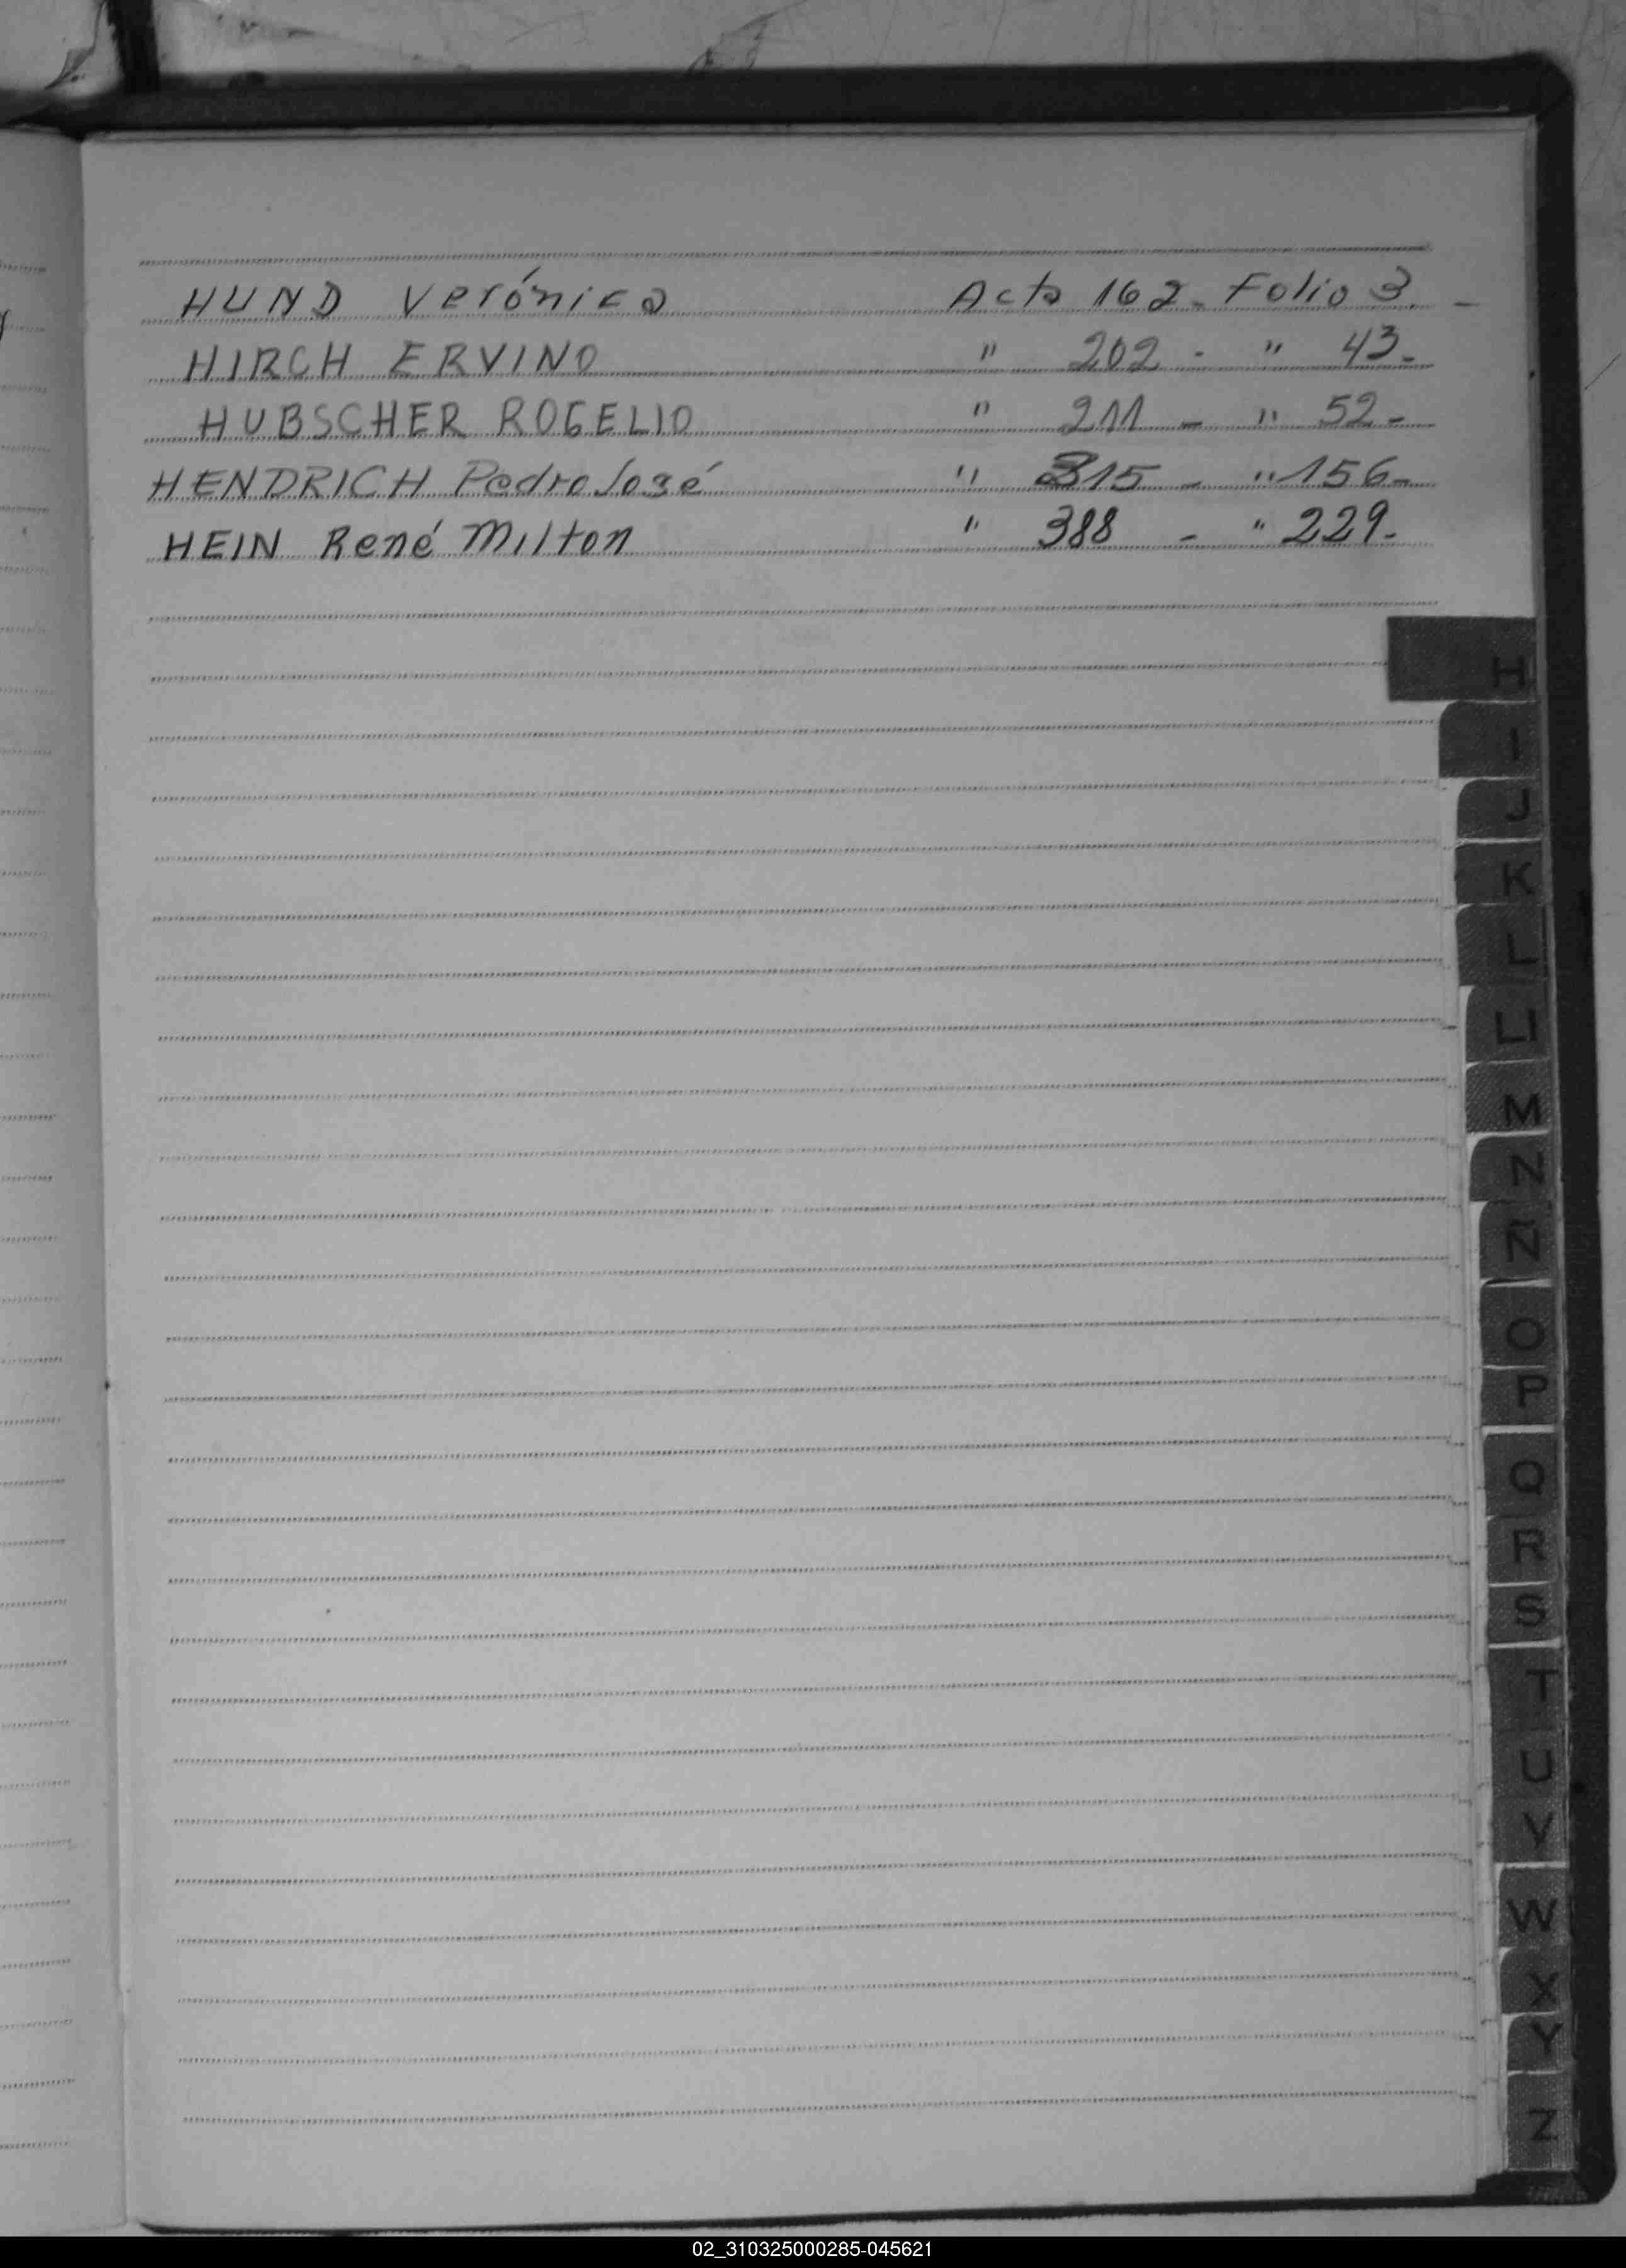 HUND Verónica Acta 162 - Folio 3. -
HIRCH ERVINO " 202 - " 43.-
HUBSCHER ROGELIO " 211 - " 52 -
HENDRICH Pedro José " 315 - " 156-
HEIN René Milton " 388 - " 229.-
H
I
J
K
L
Ll
M
N
Ñ
O
P
Q
R
S
T
U
V
W
X
Y
Z
02_310325000285-045621